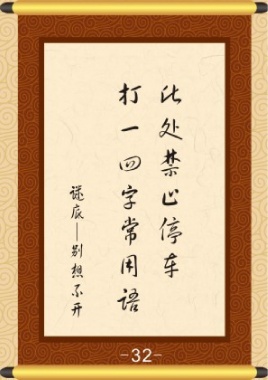 此处禁止停车
打一四字常用语
谜底——别想不开
-32-